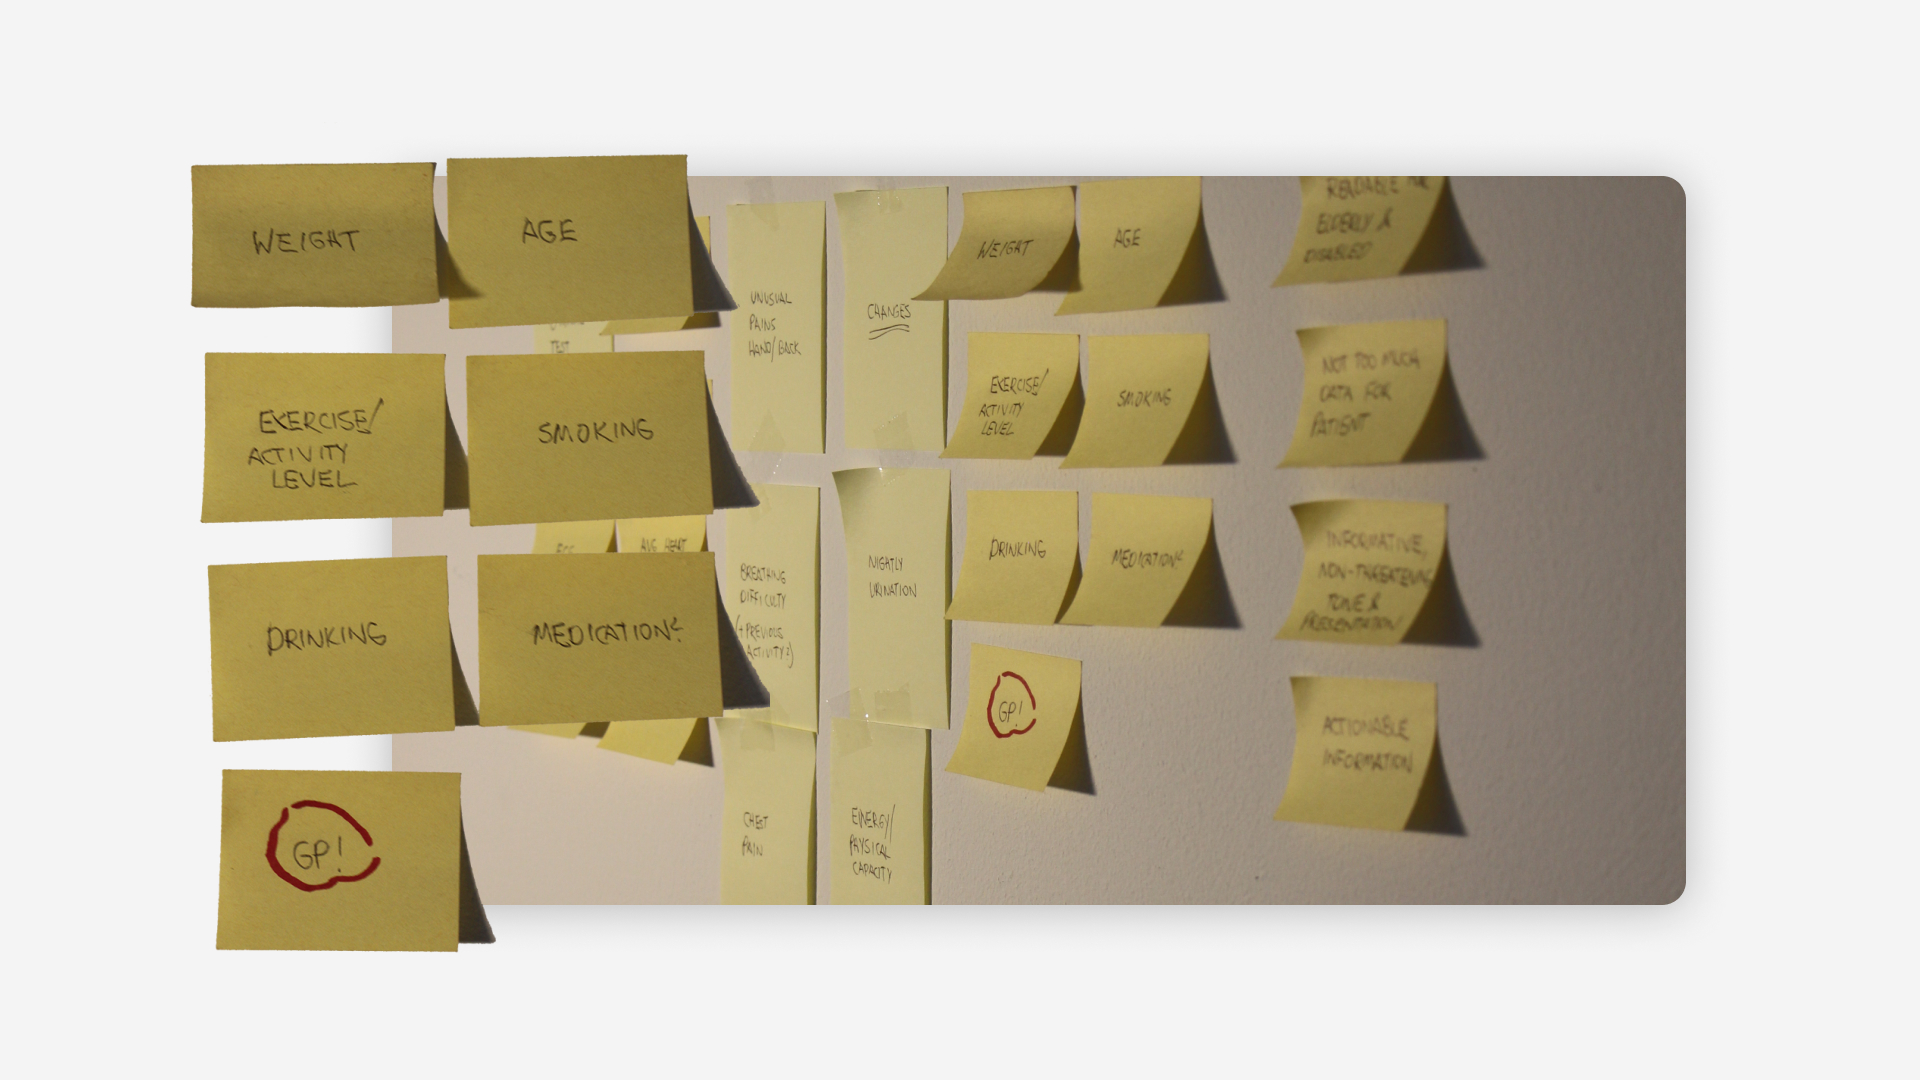 WEIGHT
AGE
EXERCISE/
ACTIVITY
LEVEL
SMOKING
DRINKING
MEDICATION?
GP!
TEST
AVG HEAT
UNUSUAL
PAINS
HAND/BACK
CHANGES
BREATHING
DIFFICULTY
(+ PREVIOUS
ACTIVITY?)
NIGHTLY
URINATION
CHEST
PAIN
ENERGY/
PHYSICAL
CAPACITY
WEIGHT
AGE
EXERCISE/
ACTIVITY
LEVEL
SMOKING
DRINKING
MEDICATION?
GP!
READABLE FOR
ELDERLY &
DISABLED
NOT TOO MUCH
DATA FOR
PATIENT
INFORMATIVE,
NON-THREATENING
TONE &
PRESENTATION
ACTIONABLE
INFORMATION